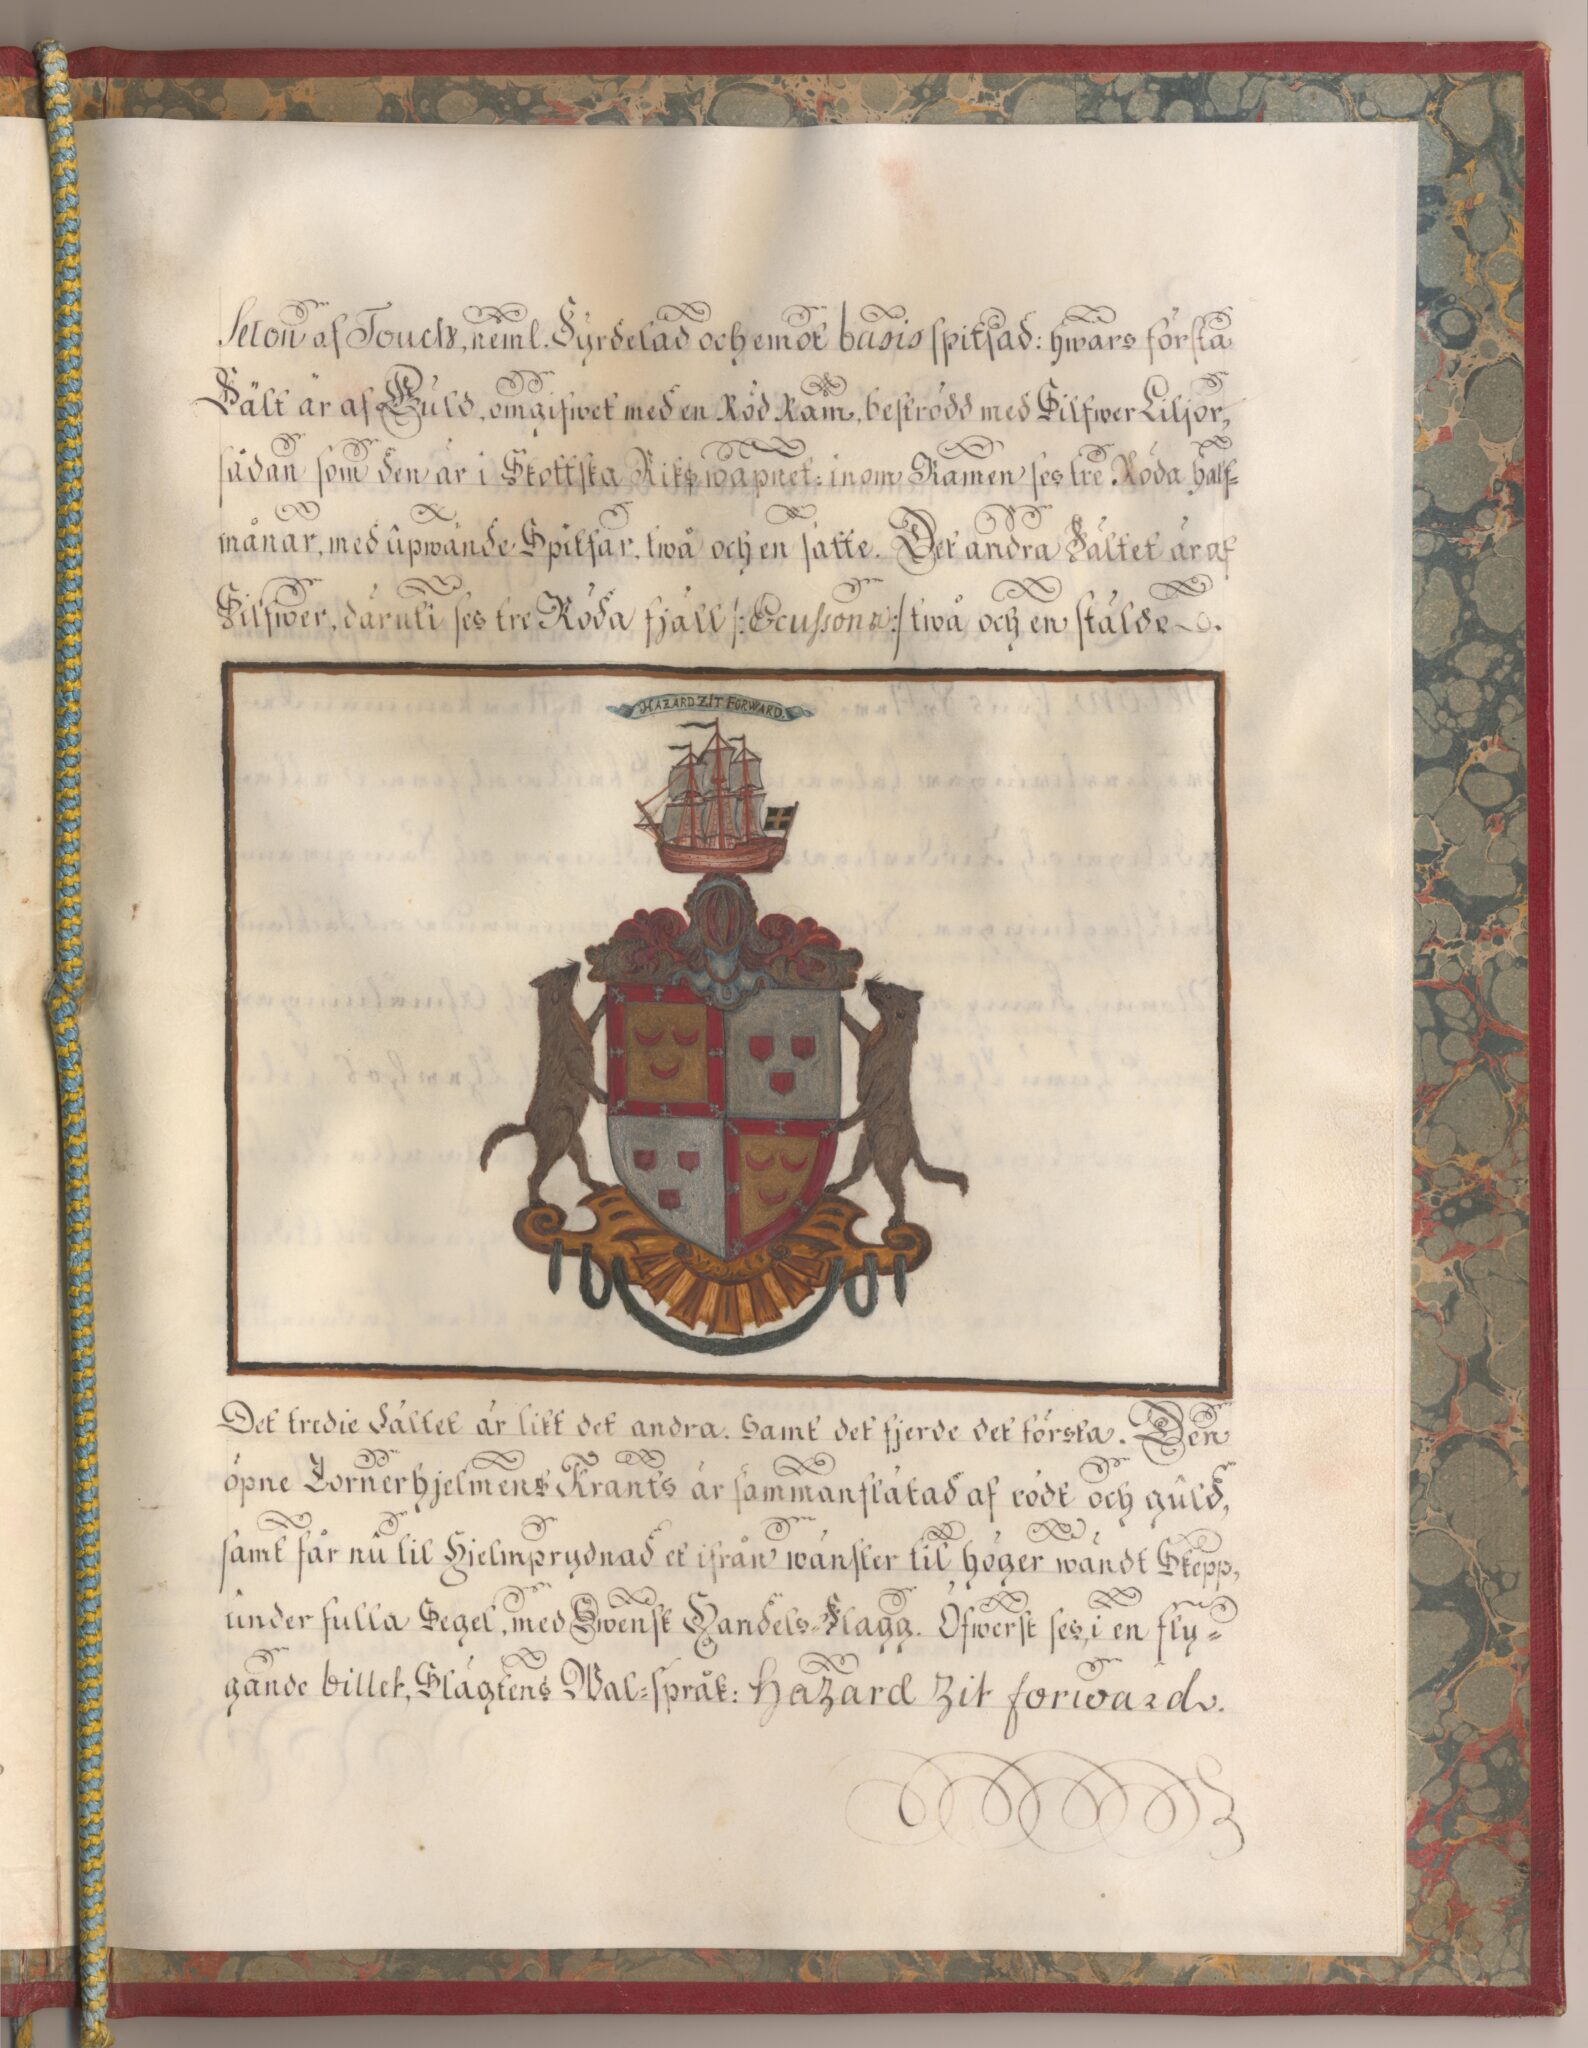 Seton af Touch, neml. Fyrdelad och emot basis spitsad: hwars första
Fält är af Guld, omgifwet med en Röd Ram, beströdd med Silfwer Liljor,
sådan som den är i Skottska Rikswapnet: inom Ramen ses tre Röda half-
månar, med upwände Spitsar, twå och en satte. Det andra Fältet är af
Silfwer, däruti ses tre Röda fjäll /:Ecussons:/ twå och en stälde.
HAZARD ZIT FORWARD.
Det tredie Fältet är likt det andra. Samt det fjerde det första. Den
öpne Tornerhjelmens Krants är sammanflätad af rödt och guld,
samt får nu til Hjelmprydnad et ifrån wänster til höger wändt Skepp,
under fulla Segel, med Swensk Handels-Flagg. Ofwerst ses, i en fly-
gande billet, Slägtens Wal-språk: Hazard Zit forward.